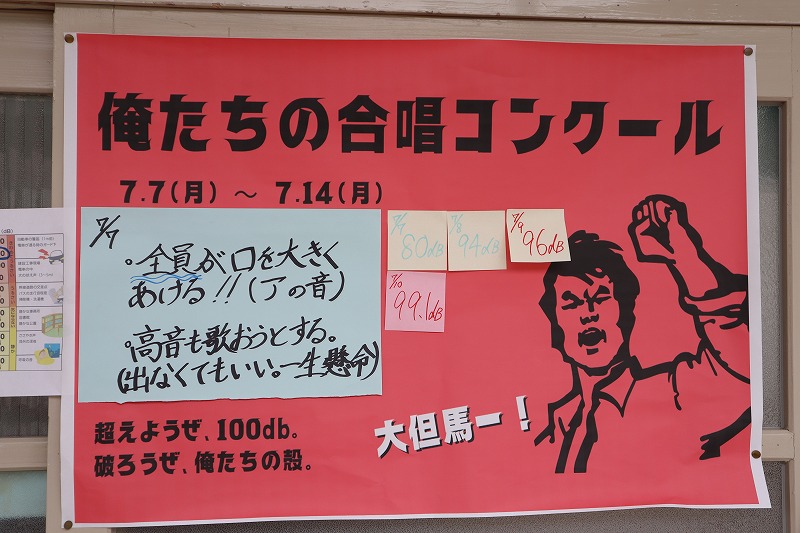 俺たちの合唱コンクール
7.7(月) ～ 7.14(月)
7/7
・全員が口を大きく
あける!!(アの音)
・高音も歌おうとする。
(出なくてもいい。一生懸命)
7/7
80dB
7/8
94dB
7/9
96dB
7/10
99.1dB
大但馬一！
超えようぜ、100db。
破ろうぜ、俺たちの殻。